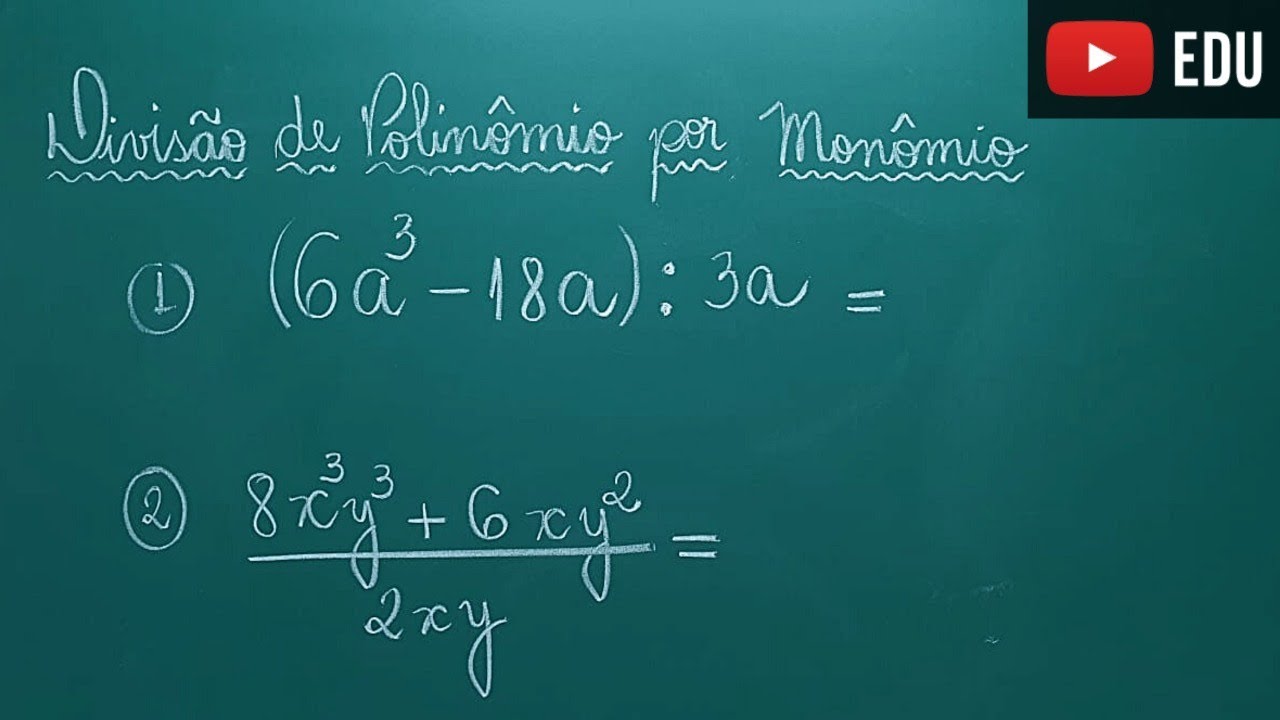 EDU
Divisão de Polinômio por Monômio
① (6a³ - 18a) : 3a =
② 8x³y³ + 6xy² =
2xy